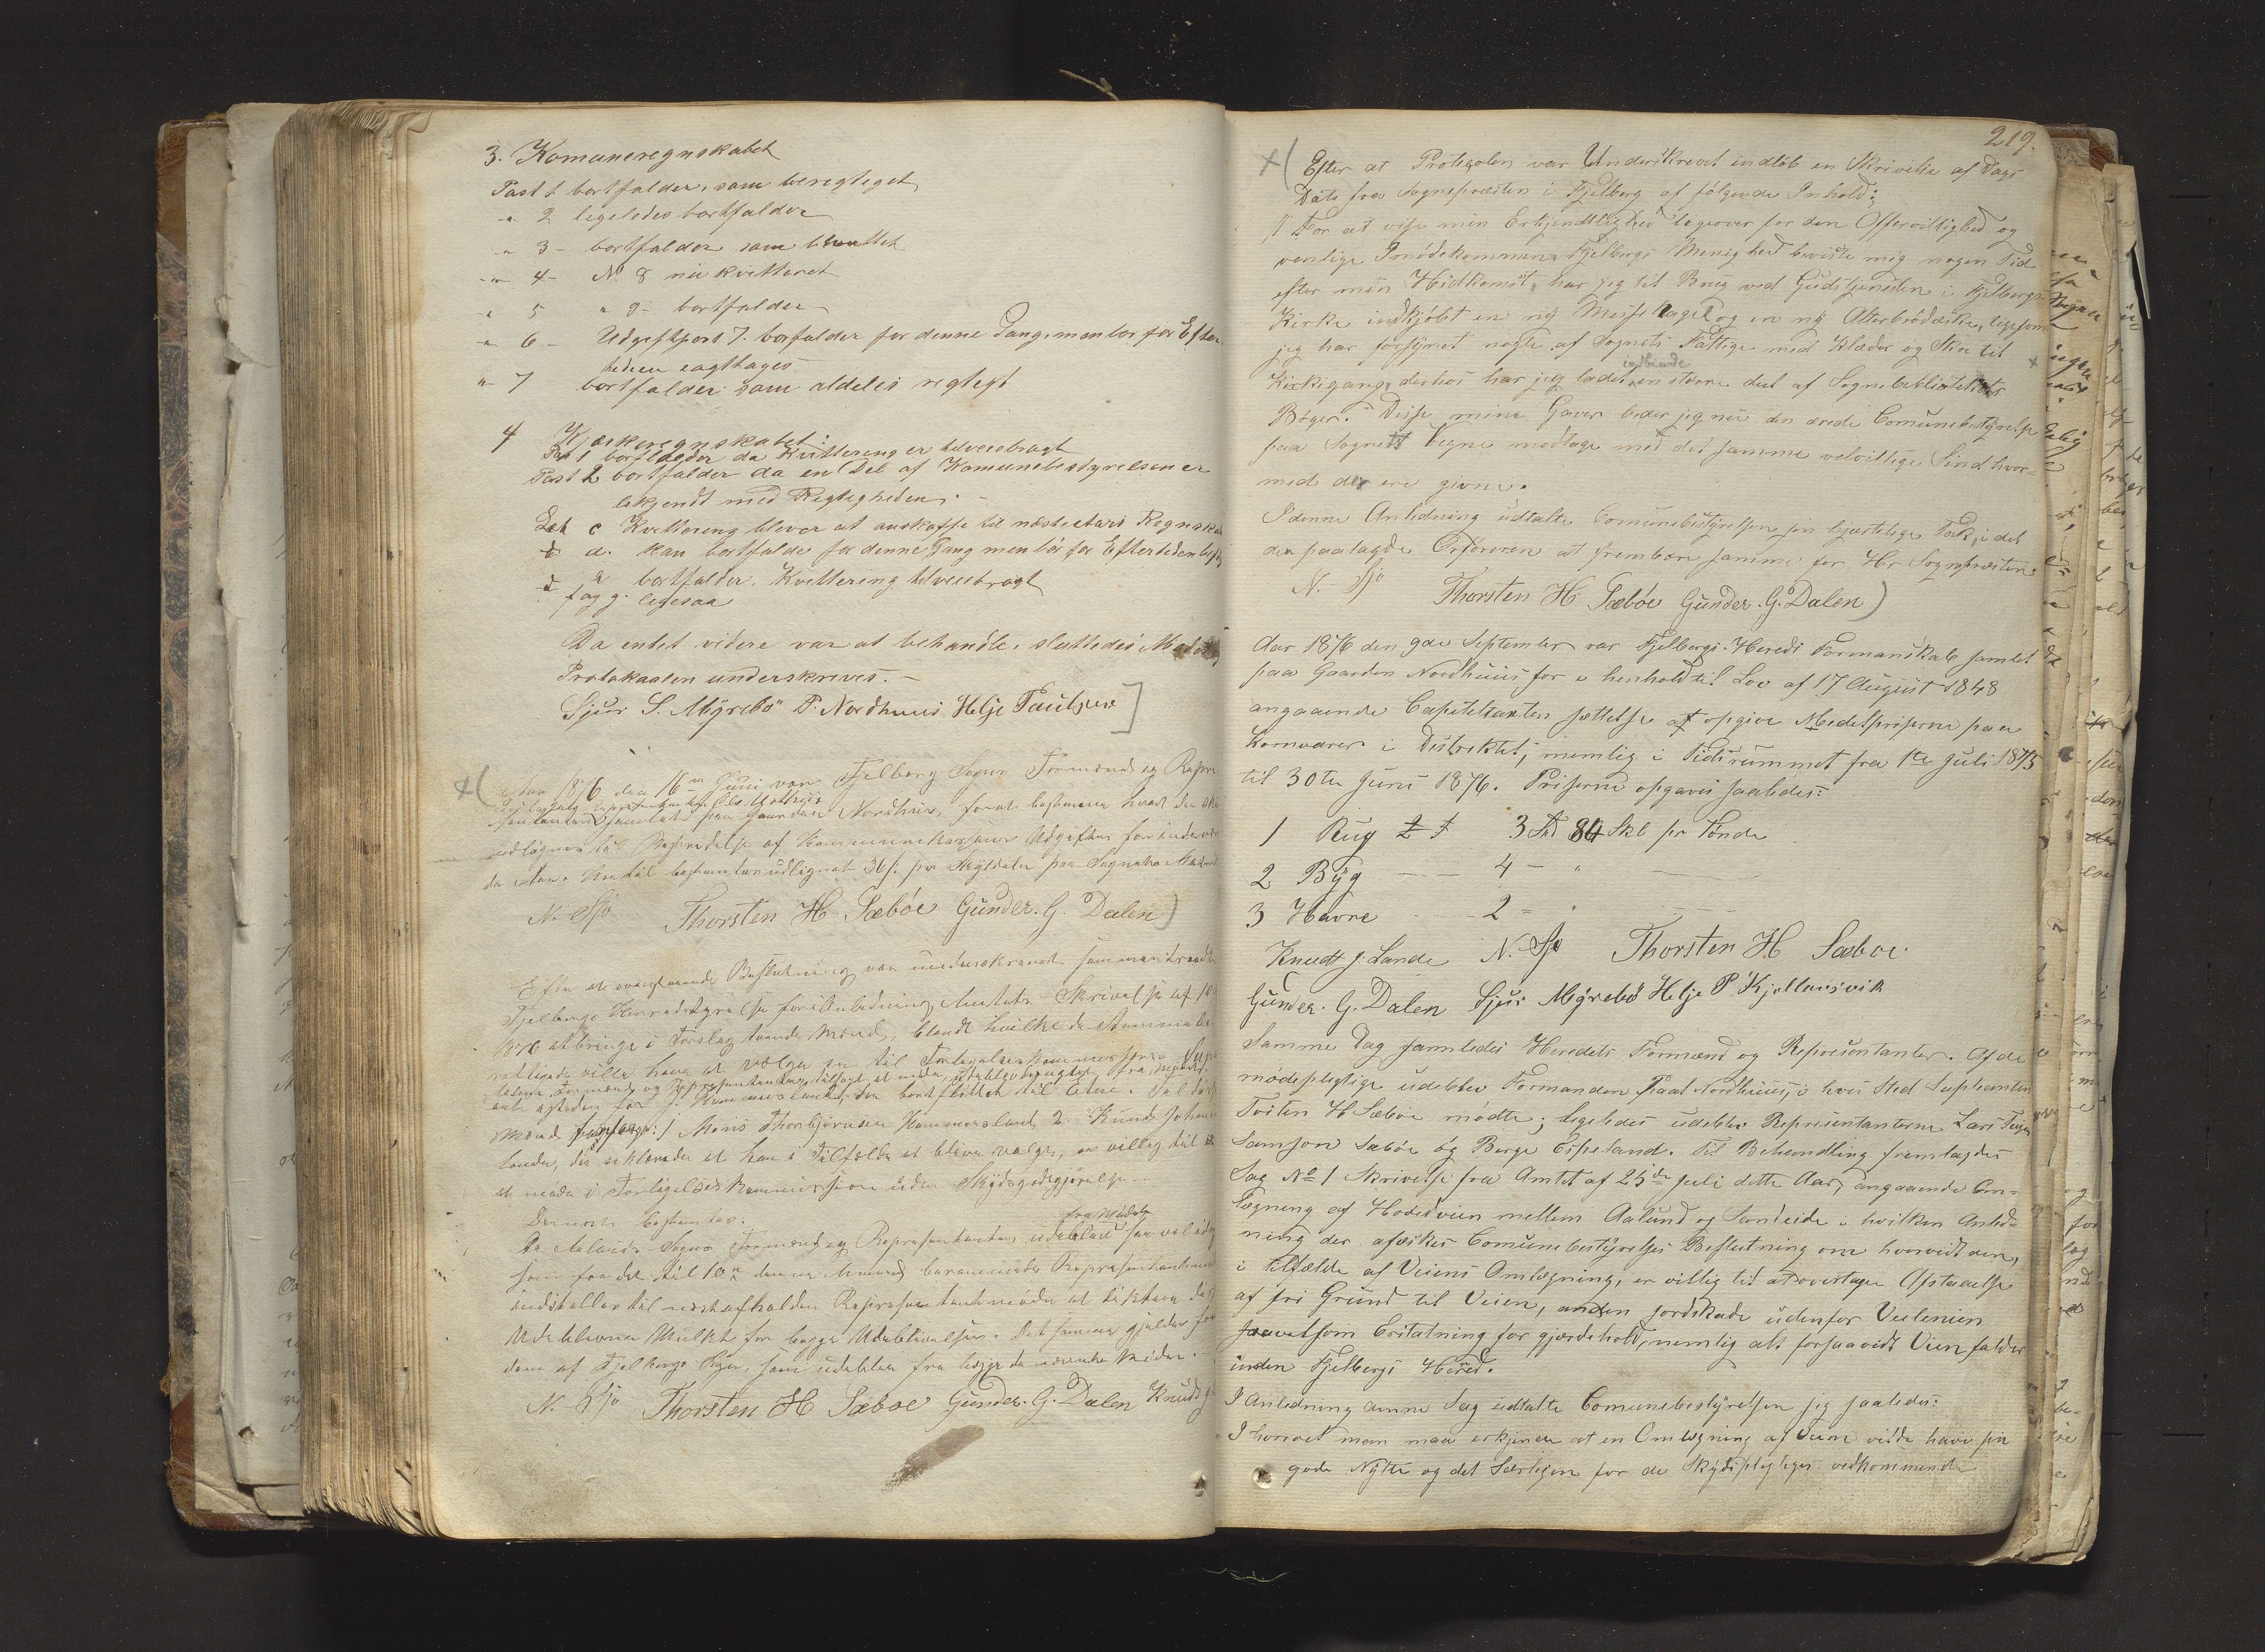 3. Komuneregnskabet
Post 1 bortfalder, som beregtiget
" 2 legeledes bortfalder
" 3 - bortfalder som benøttet
" 4 - No 8 nu kvitteret
" 5 " 9 - bortfalder
" 6 - Udgiftpost 7. borfalder for denne Gang, men bør for Efter
tiden eagttages
" 7 bortfalder som aldeles regtigt
4 Kjerkeregnskabet:
Post 1 bortfalder da Kvittering er tilveiebragt
Post 2 bortfalder da en Del af Komunebestyrelsen er
bekjendt med Regtigheden. -
Lit c Kvittering blever at anskaffe til næste Aars Regnskab
d. kan bortfalde for denne Gang men bør for Eftertiden
e bortfalder. Kvittering tilveiebragt
f og g. legesaa
Da entet videre var at behandle, sluttedes Mødet
Protokaalen underskreves. -
Sjur S. Myrebø P. Nordhuus Helje Paulsen
Aar 1876 den 16de Juni var Fjelberg Sogns Formænd og Repre
sentanter samlede paa Gaarden Nordhus, for at bestemme hvad der
udlignes til Bestridelse af Kommunekassens Udgifter for indeværende
da Aar. Hertil bestemtes udlignet 36 s. pr Skylddaler paa Sognets Matrikul
N. Sjo Thorsten H Sæbøe Gunder. G. Dalen)
Efter at ovenstaaende Beslutning var underskrevet sammentraadte
Fjelbergs Herredstyrelse for i Anledning Amtets Skrivelse af
1876 at bringe i Forslag tvende Mænd, blandt hvilke de Stemmebe
rettigede ville have at vælge en til Forligelseskommissær
Mænd 1 Mons Thorbjørnsen Hammersland, 2 Knud Johan
Lande, der erklærede at han i Tilfælde at blive valgt, er villig til at
at møde i Forligelseskommission uden Skydsgodtgjørelse. -
Dernæst bestemtes:
fra Mødet
De Aalunds Sogns Formænd og Representanter udeblevne saavel idag
som fra det til 10de denne Maaned berammede Representantmøde
indkaldes til næst afholdende Representantmøde at diktere de
Udeblevne Mulkt for begge Udeblivelser. Det samme gjælder for
dem af Fjelbergs Sogn, som udeblev fra begge de nævnte Møder. -
N. Sjo Thorsten H Sæboe Gunder. G. Dalen Knudt
219.
Efter at Protocolen var Underskrevet indløb en Skrivelse af Dags
Dato fra Sognepræsten i Fjelberg af følgende Inhold:
"For at vise min Erkjendtlighed ligeover for den Offervillighed og
venlige Imødekommen Fjelbergs Menighed beviste mig nogen Tid
efter min Hidkomst, har jeg til Brug ved Gudstjenesten i Fjelbergs
Kirke indkjøbt en ny Messehagel og en ny Alterbrødæske, ligesom
jeg har forsynet nogle af Sognets Fattige med Klæder og Sko til
indbinde
Kirkegang, derhos har jeg ladet en større deel af Sognebibliotekets
Bøger." Disse mine Gaver beder jeg nu den ærede Comunebestyrelse
paa Sognets Vegne modtage med det samme velvillige Sind hvor-
med de ere givne.
I denne Anledning udtalte Comunebestyrelsen sin hjertelige Tak, i det
den paalagde Ordføreren at frembære samme for Hr Sognepræsten.
N. Sjo Thorsten H Sæbøe Gunder. G. Dalen)
Aar 1876 den 9de September var Fjelbergs Hereds Formanskab samlet
paa Gaarden Nordhuus for i henhold til Lov af 17 August 1848
angaaende Capitelstaxten settelse at opgive Medelpriserne paa
Kornvarer i Distriktet, nemlig i Tidsrummet fra 1ste Juli 1875
til 30te Juni 1876. Priserne opgaves saaledes:
1 Rug 3 Sp 84 Skl pr Tønde
2 Byg - - 4 - "
3 Havre - - 2 - "
Knudt J. Lande N. Sjo Thorsten H Sæboe.
Gunder. G. Dalen Sjur Myrebø Helje P Kjellesvik
Samme Dag samledes Heredets Formænd og Represontanter. Af de
mødepligtige udeblev Formanden Paal Nordhuus, i hvis Sted Suplianten
Tosten H Sæbøe mødte; ligeledes udeblev Representanterne Lars
Samson Sæbøe og Berge Espeland. Til Behandling fremlagdes
Sag No 1 Skrivelse fra Amtet af 25de Juli dette Aar, angaaende Om-
lægning af Hovedveien mellem Aalund og Sandeide i hvilken Anled-
ning der afæskes Comunebestyrelses Beslutning om hvorvidt den,
i tilfælde af Veiens Omlægning, er villig til at overtage Afstaaelse
af fri Grund til Veien, anden jordskade udenfor Veilenien
saavelsom Erstatning for gjerdehold, nemlig alt forsaavidt Veien falder
inden Fjelbergs Hered.
I Anledning denne Sag udtalte Comunebestyrelsen sig saaledes:
I hvorvel man maa erkjende at en Omlægning af Veien vilde have sin
gode Nytte og det Særligen for de Skydspligtiges vedkommende